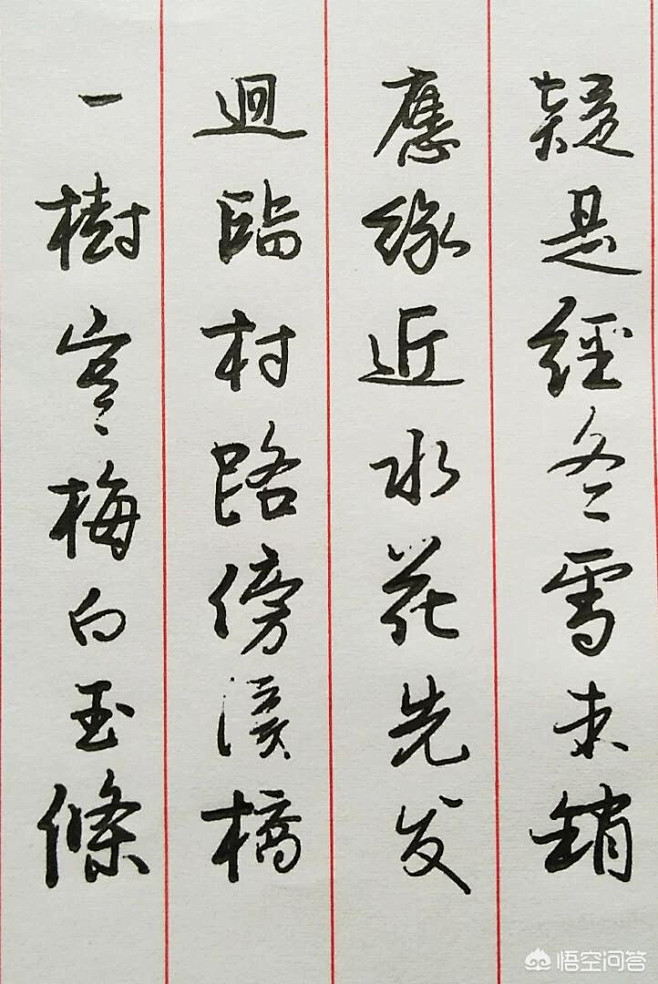 一樹寒梅白玉條
迴臨村路傍溪橋
應緣近水花先发
疑是經冬雪未銷
悟空问答